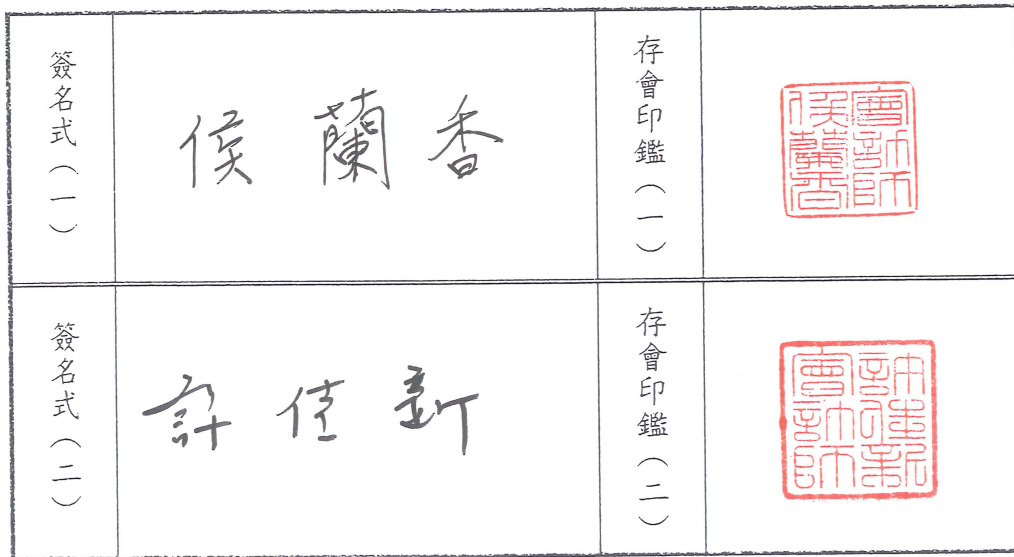 簽名式（一）
侯蘭香
存會印鑑（一）
會計師
侯蘭香
簽名式（二）
許佳新
存會印鑑（二）
許佳新
會計師